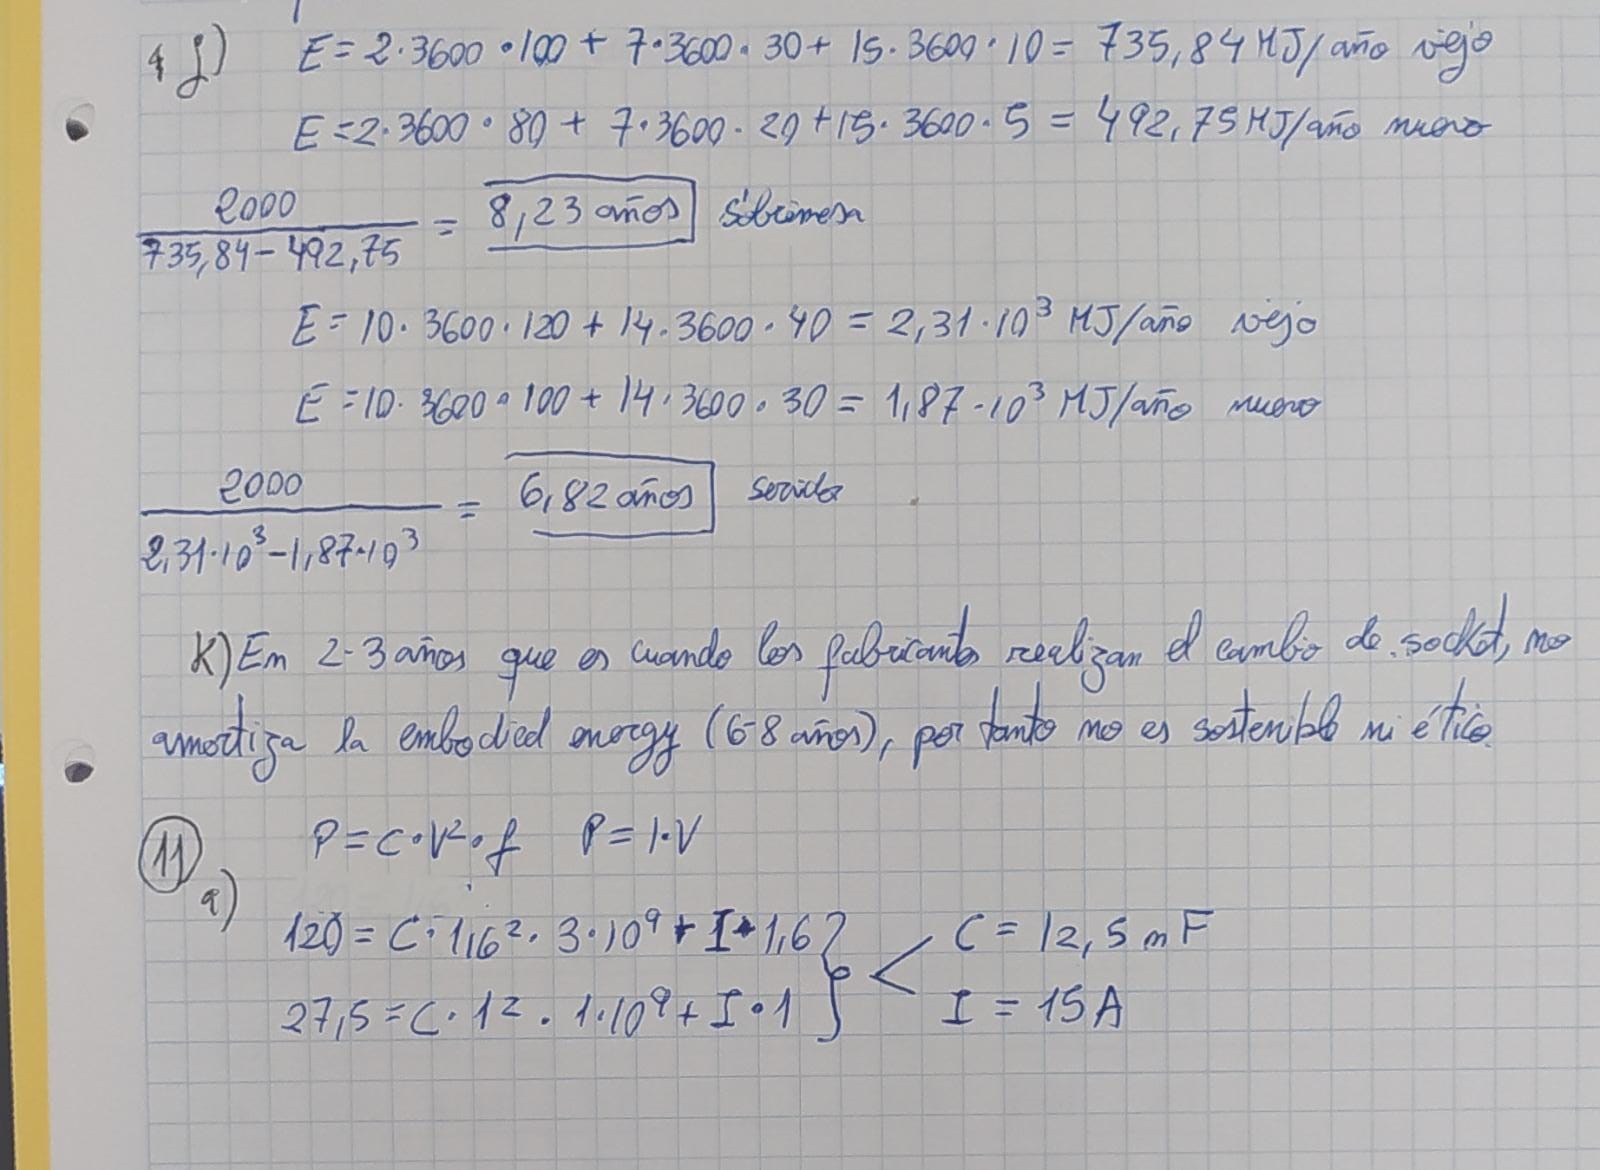 4 j) E = 2·3600·100 + 7·3600·30 + 15·3600·10 = 735,84 MJ/año viejo
E = 2·3600·80 + 7·3600·20 + 15·3600·5 = 492,75 MJ/año nuevo
2000 / 735,84 - 492,75 = 8,23 años sobremesa
E = 10·3600·120 + 14·3600·40 = 2,31·10³ MJ/año viejo
E = 10·3600·100 + 14·3600·30 = 1,87·10³ MJ/año nuevo
2000 / 2,31·10³ - 1,87·10³ = 6,82 años servidor
K) En 2-3 años que es cuando los fabricantes realizan el cambio de socket, no
amortiza la embodied energy (6-8 años), por tanto no es sostenible ni ético.
11 P = C·V²·f P = I·V
a)
120 = C·1,6²·3·10⁹ + I·1,6 } < C = 12,5 nF
27,5 = C·1²·1·10⁹ + I·1 } I = 15A